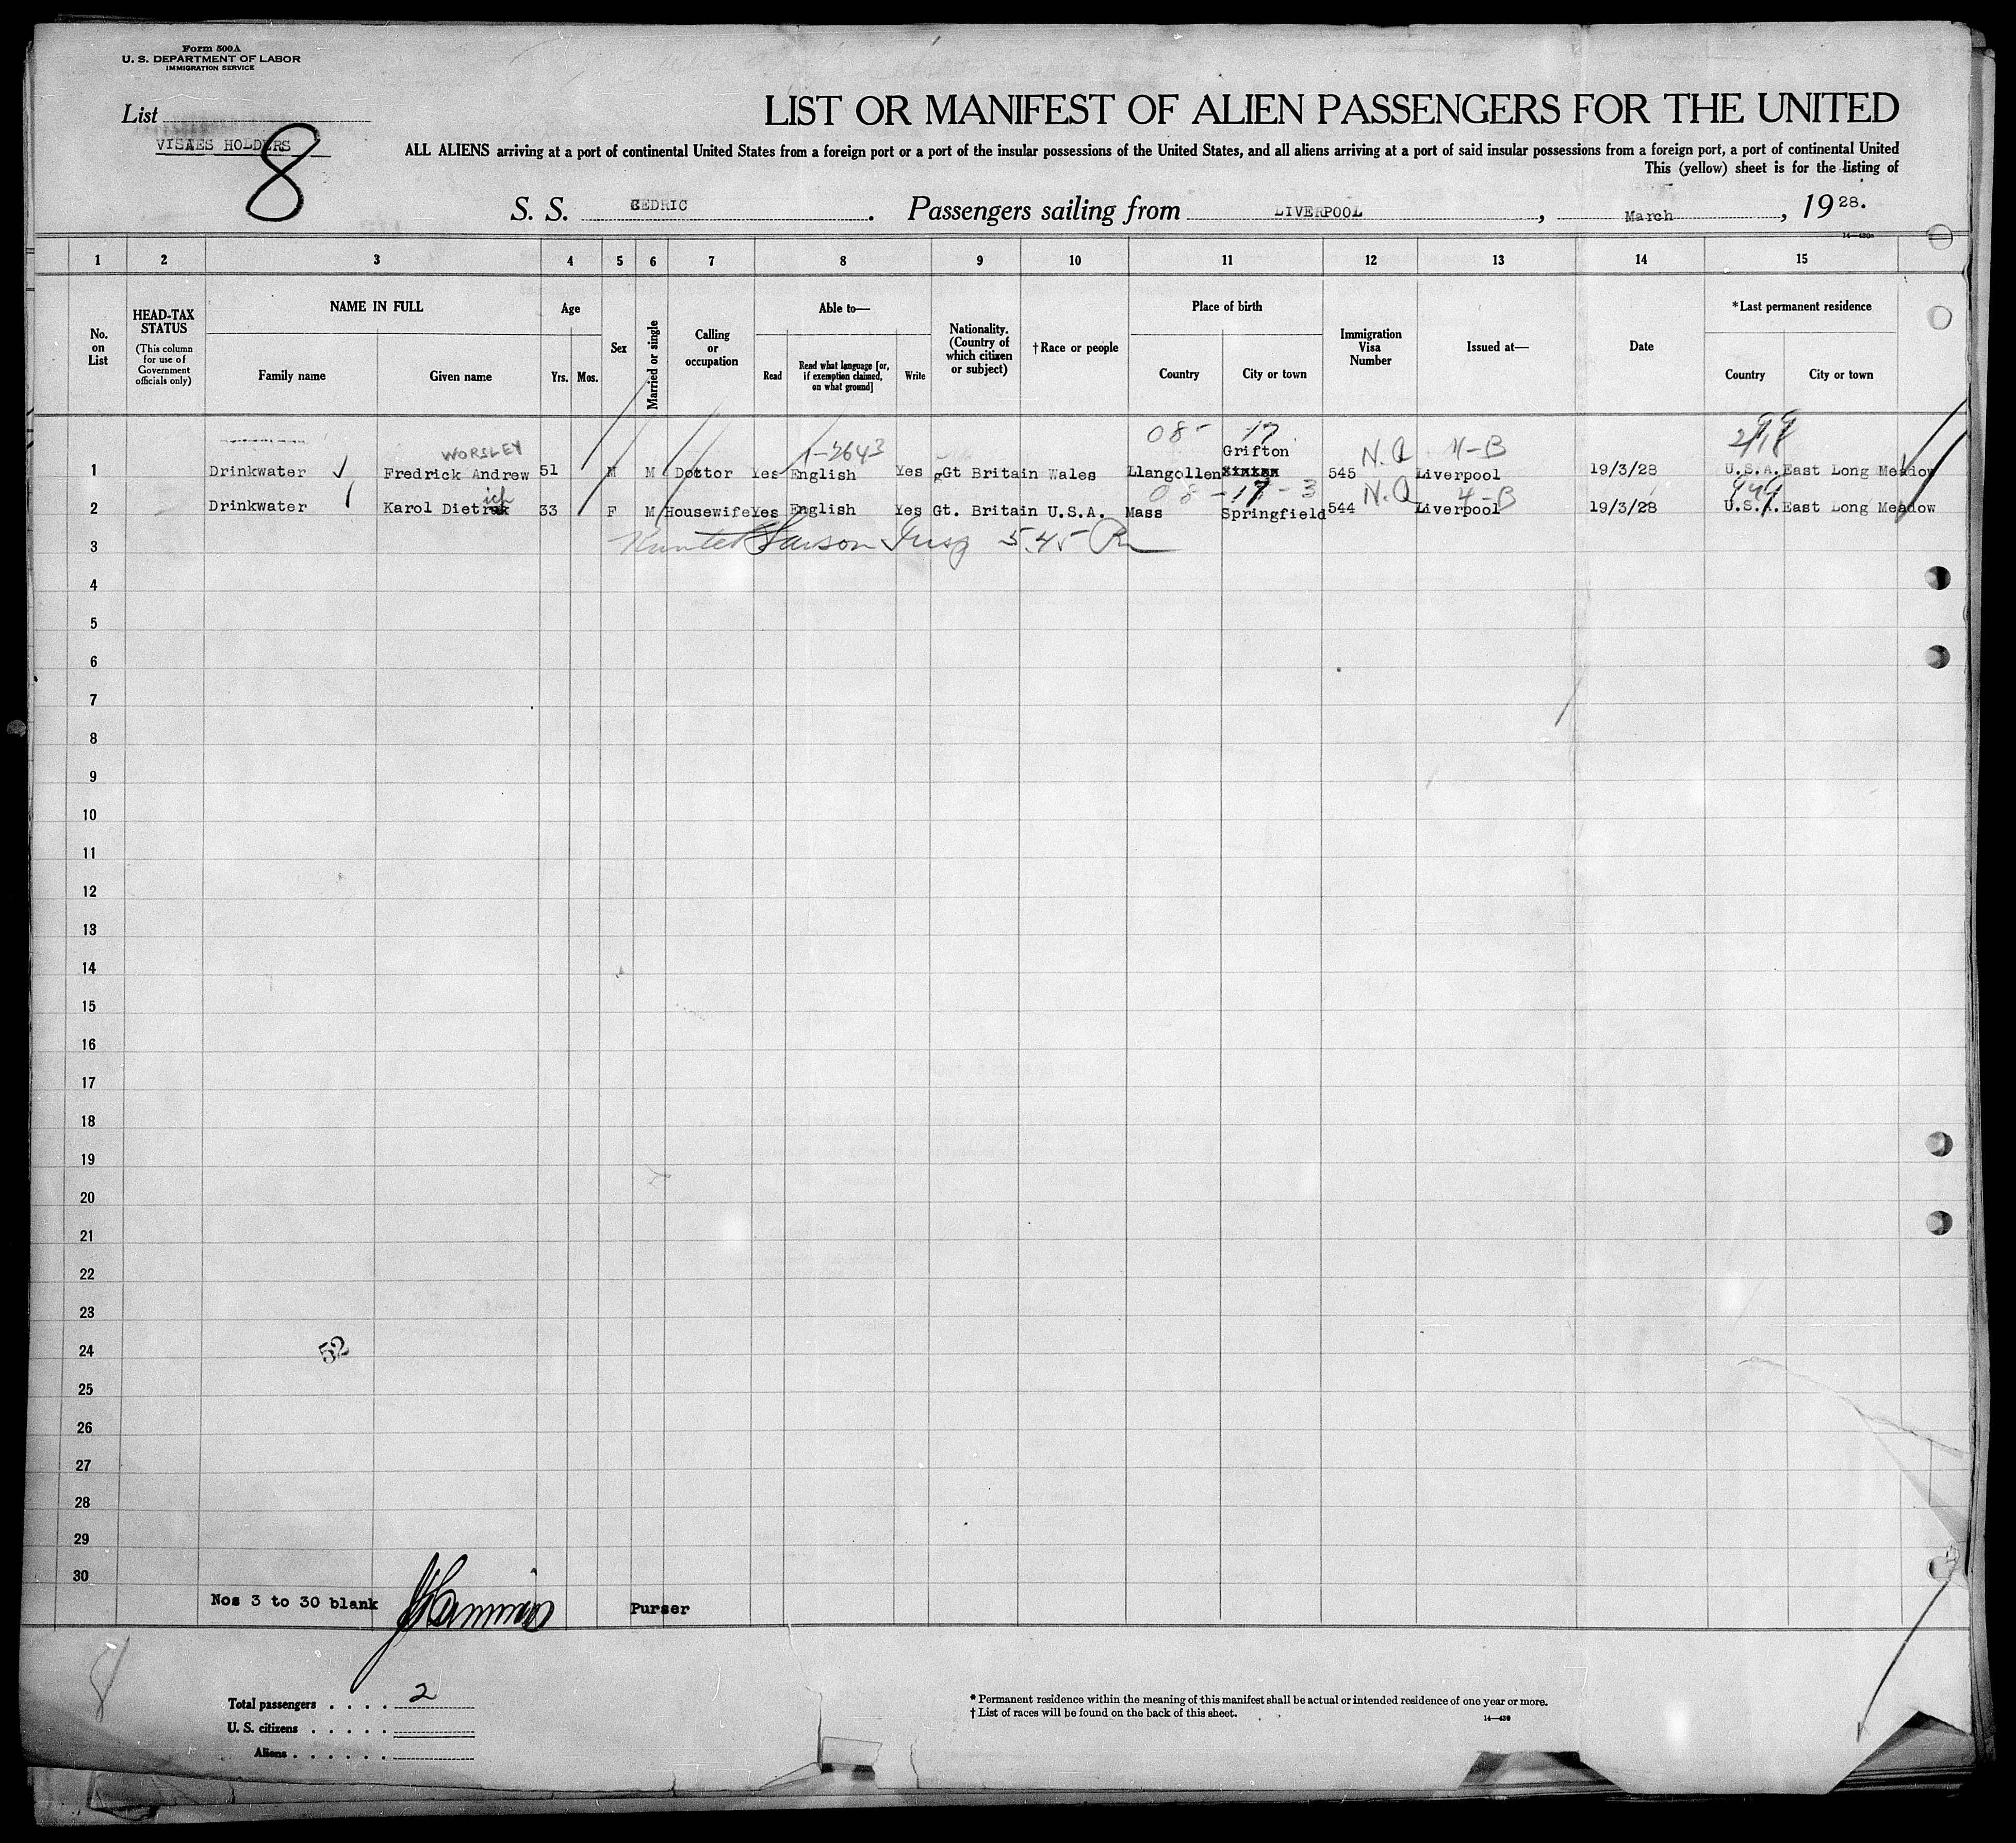 Form 500A
U. S. DEPARTMENT OF LABOR
IMMIGRATION SERVICE
List
VISAES HOLDERS
8
LIST OR MANIFEST OF ALIEN PASSENGERS FOR THE UNITED
ALL ALIENS arriving at a port of continental United States from a foreign port or a port of the insular possessions of the United States, and all aliens arriving at a port of said insular possessions from a foreign port, a port of continental United
This (yellow) sheet is for the listing of
S. S. CEDRIC. Passengers sailing from LIVERPOOL, March, 1928.
14—430a
1 2 3 4 5 6 7 8 9 10 11 12 13 14 15
No. on List
HEAD-TAX STATUS
(This column for use of Government officials only)
NAME IN FULL
Family name Given name
Age
Yrs. Mos.
Sex
Married or single
Calling or occupation
Able to—
Read Read what language [or, if exemption claimed, on what ground] Write
Nationality. (Country of which citizen or subject)
†Race or people
Place of birth
Country City or town
Immigration Visa Number
Issued at—
Date
*Last permanent residence
Country City or town
WORSLEY 1-2643 08- 17 Grifton N.Q 4-B
1 Drinkwater Fredrick Andrew 51 M M Dottor Yes English Yes Gt Britain Wales Llangollen 545 Liverpool 19/3/28 U.S.A. East Long Meadow
ich 08-17-3 N.Q 4-B 999
2 Drinkwater Karol Diet 33 F M Housewife Yes English Yes Gt. Britain U.S.A. Mass Springfield 544 Liverpool 19/3/28 U.S.A. East Long Meadow
3 Larson Insp 5.45 Pm
4
5
6
7
8
9
10
11
12
13
14
15
16
17
18
19
20
21
22
23
24
52
25
26
27
28
29
30
Nos 3 to 30 blank Purser
8
Total passengers . . . . 2
U. S. citizens . . . . .
Aliens . . . . . .
* Permanent residence within the meaning of this manifest shall be actual or intended residence of one year or more.
† List of races will be found on the back of this sheet.
14—430